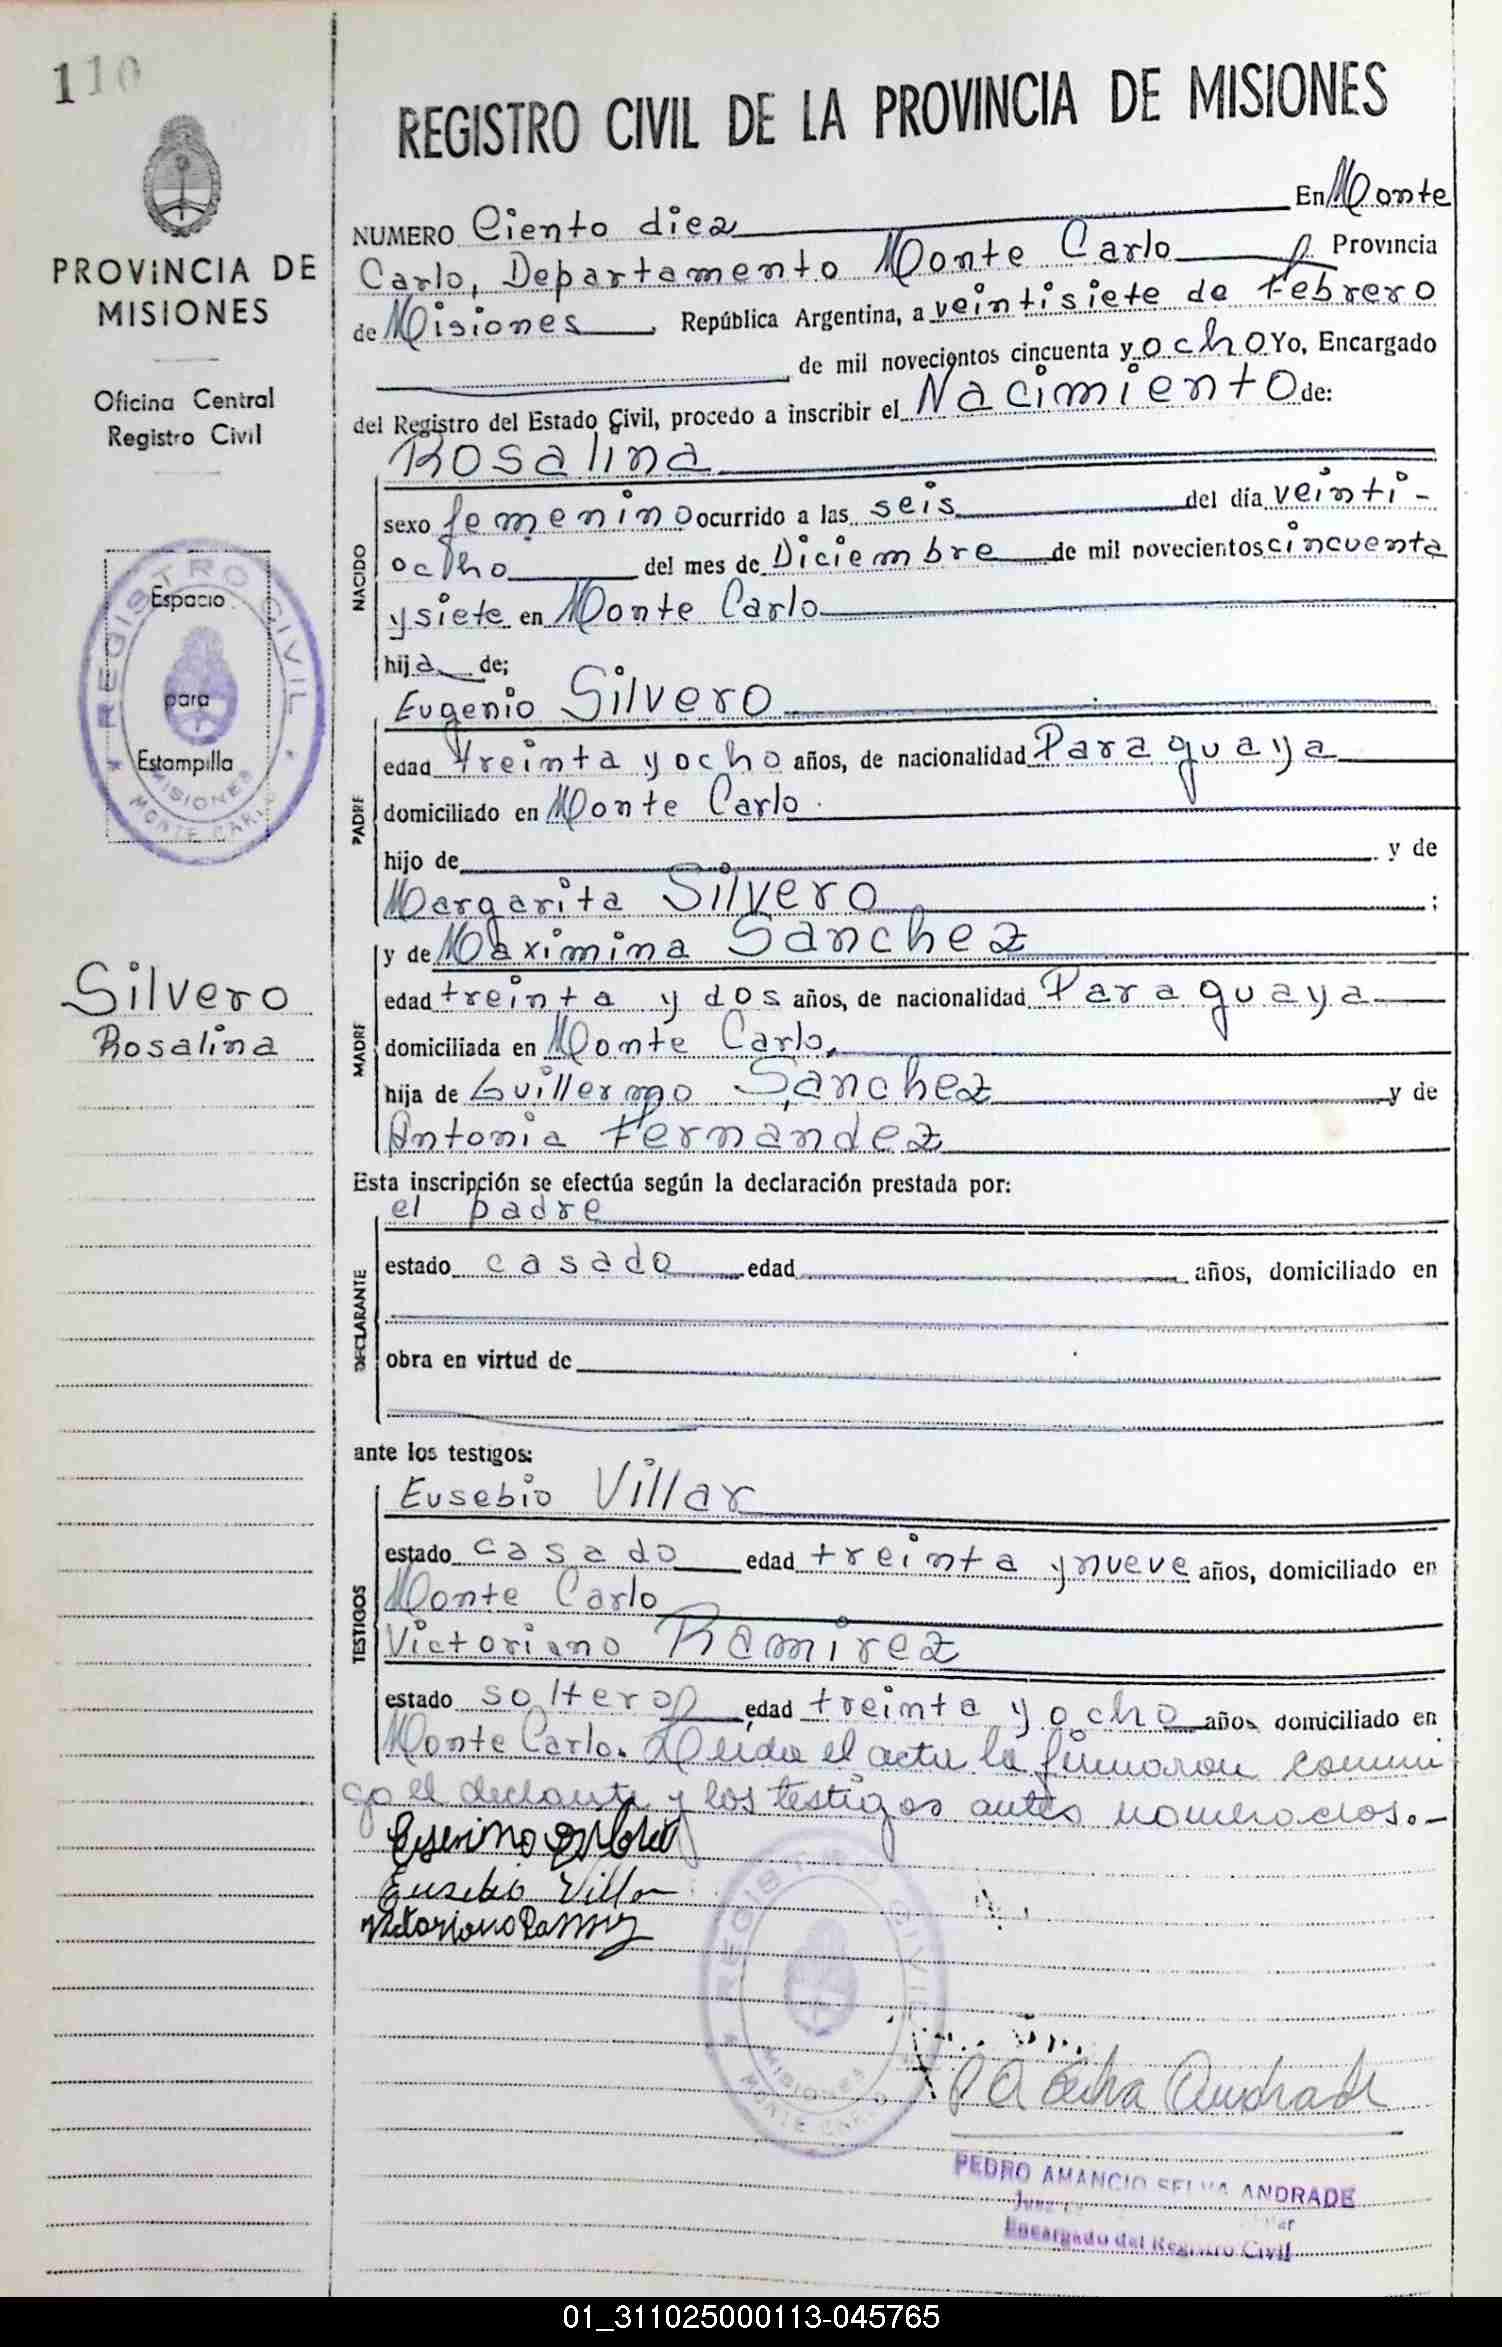 110
PROVINCIA DE
MISIONES
Oficina Central
Registro Civil
REGISTRO CIVIL
Espacio
para
Estampilla
MISIONES
MONTE CARLO
Silvero
Rosalina
REGISTRO CIVIL DE LA PROVINCIA DE MISIONES
NUMERO Ciento diez En Monte
Carlo, Departamento Monte Carlo Provincia
de Misiones República Argentina, a veintisiete de Febrero
de mil novecientos cincuenta y ocho Yo, Encargado
del Registro del Estado Civil, procedo a inscribir el Nacimiento de:
NACIDO
Rosalina
sexo femenino ocurrido a las seis del día veinti-
ocho del mes de Diciembre de mil novecientos cincuenta
y siete en Monte Carlo
hija de;
PADRE
Eugenio Silvero
edad treinta y ocho años, de nacionalidad Paraguaya
domiciliado en Monte Carlo
hijo de y de
Margarita Silvero ;
MADRE
y de Maximina Sanchez
edad treinta y dos años, de nacionalidad Paraguaya
domiciliada en Monte Carlo,
hija de Guillermo Sanchez y de
Antonia Fernandez
Esta inscripción se efectúa según la declaración prestada por:
DECLARANTE
el padre
estado casado edad años, domiciliado en
obra en virtud de
ante los testigos:
TESTIGOS
Eusebio Villar
estado casado edad treinta y nueve años, domiciliado en
Monte Carlo
Victoriano Ramirez
estado soltero edad treinta y ocho años domiciliado en
Monte Carlo. Leida el acta la firmaron conmi
go el declarante y los testigos antes nomerados.-
Eusebio Villar
Victoriano Ramirez
REGISTRO CIVIL
MISIONES
MONTE CARLO
PA Selva Andrade
PEDRO AMANCIO SELVA ANDRADE
Juez
Encargado del Registro Civil
01_311025000113-045765